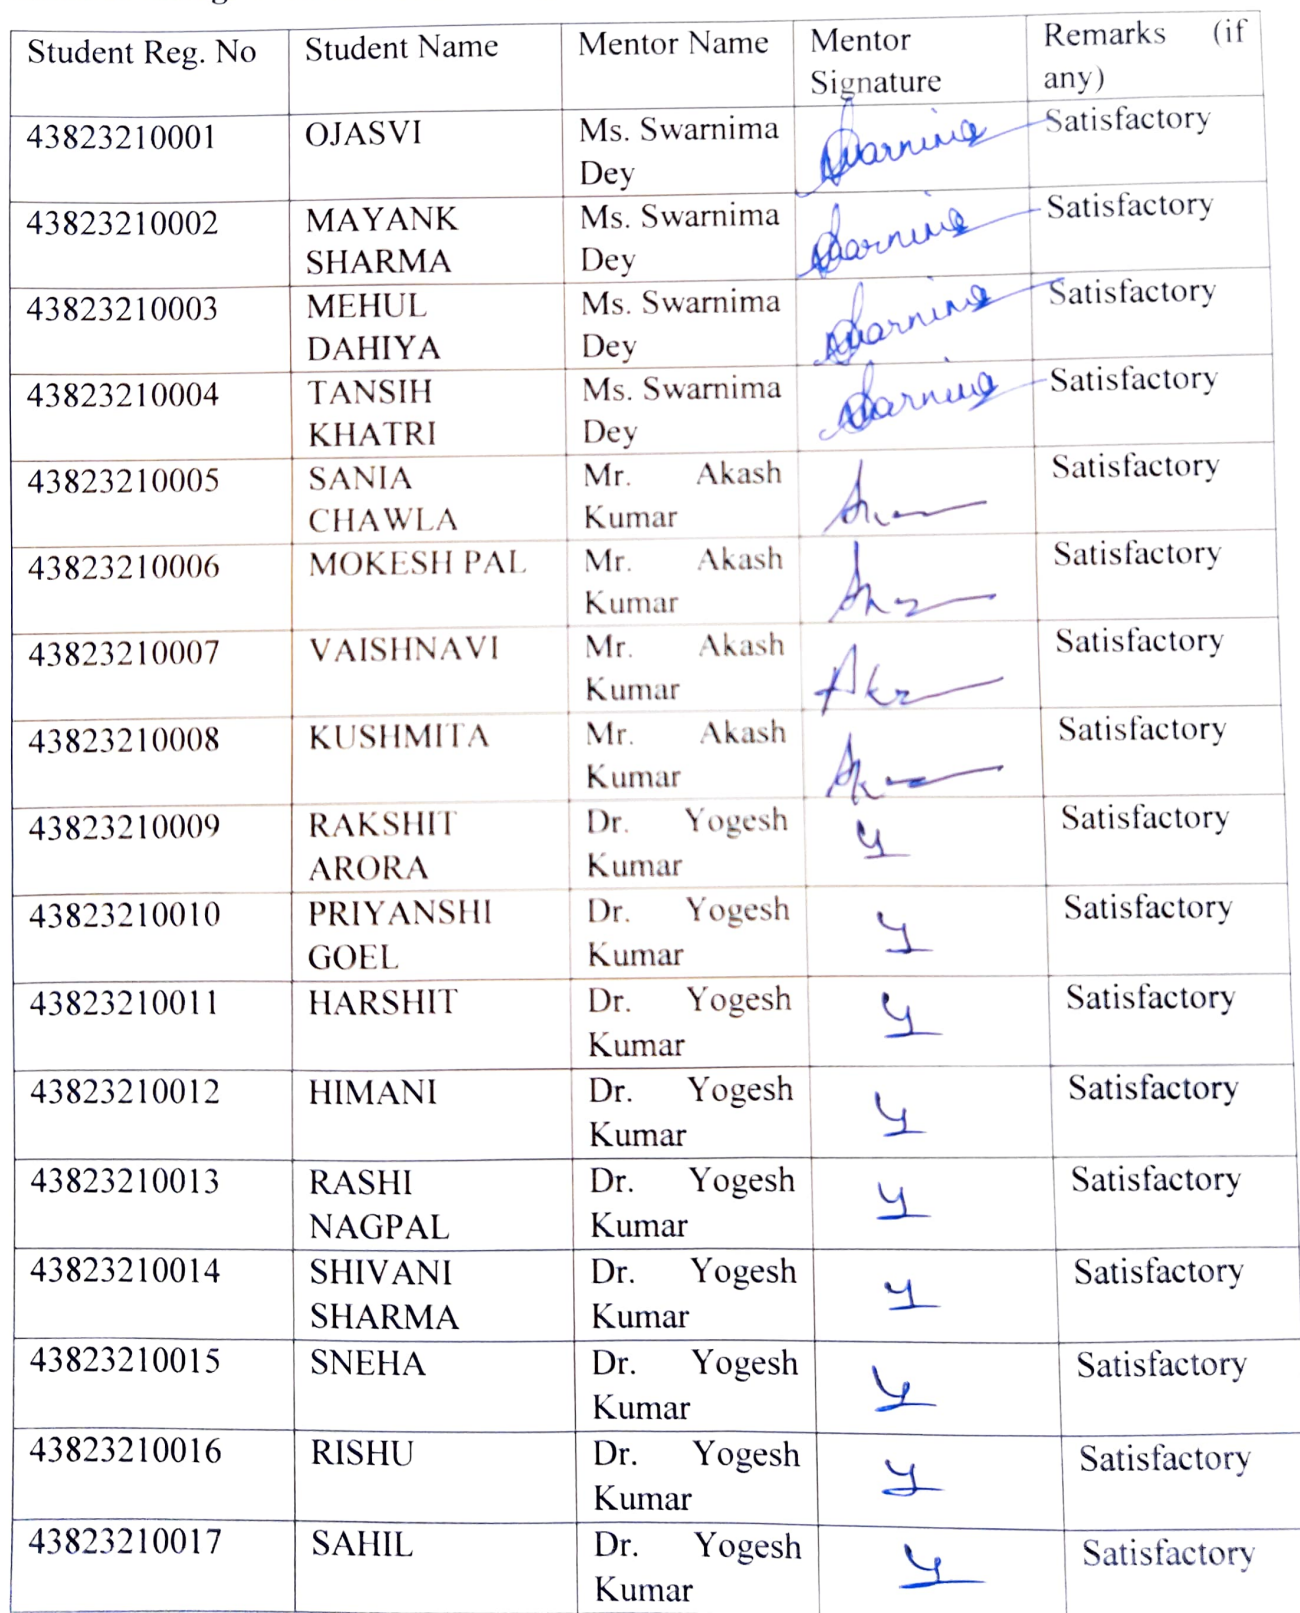 Student Reg. No Student Name Mentor Name Mentor Signature Remarks (if any)
43823210001 OJASVI Ms. Swarnima Dey Swarnima Satisfactory
43823210002 MAYANK SHARMA Ms. Swarnima Dey Swarnima Satisfactory
43823210003 MEHUL DAHIYA Ms. Swarnima Dey Swarnima Satisfactory
43823210004 TANSIH KHATRI Ms. Swarnima Dey Swarnima Satisfactory
43823210005 SANIA CHAWLA Mr. Akash Kumar Satisfactory
43823210006 MOKESH PAL Mr. Akash Kumar Satisfactory
43823210007 VAISHNAVI Mr. Akash Kumar Satisfactory
43823210008 KUSHMITA Mr. Akash Kumar Satisfactory
43823210009 RAKSHIT ARORA Dr. Yogesh Kumar Y Satisfactory
43823210010 PRIYANSHI GOEL Dr. Yogesh Kumar Y Satisfactory
43823210011 HARSHIT Dr. Yogesh Kumar Y Satisfactory
43823210012 HIMANI Dr. Yogesh Kumar Y Satisfactory
43823210013 RASHI NAGPAL Dr. Yogesh Kumar Y Satisfactory
43823210014 SHIVANI SHARMA Dr. Yogesh Kumar Y Satisfactory
43823210015 SNEHA Dr. Yogesh Kumar Y Satisfactory
43823210016 RISHU Dr. Yogesh Kumar Y Satisfactory
43823210017 SAHIL Dr. Yogesh Kumar Y Satisfactory